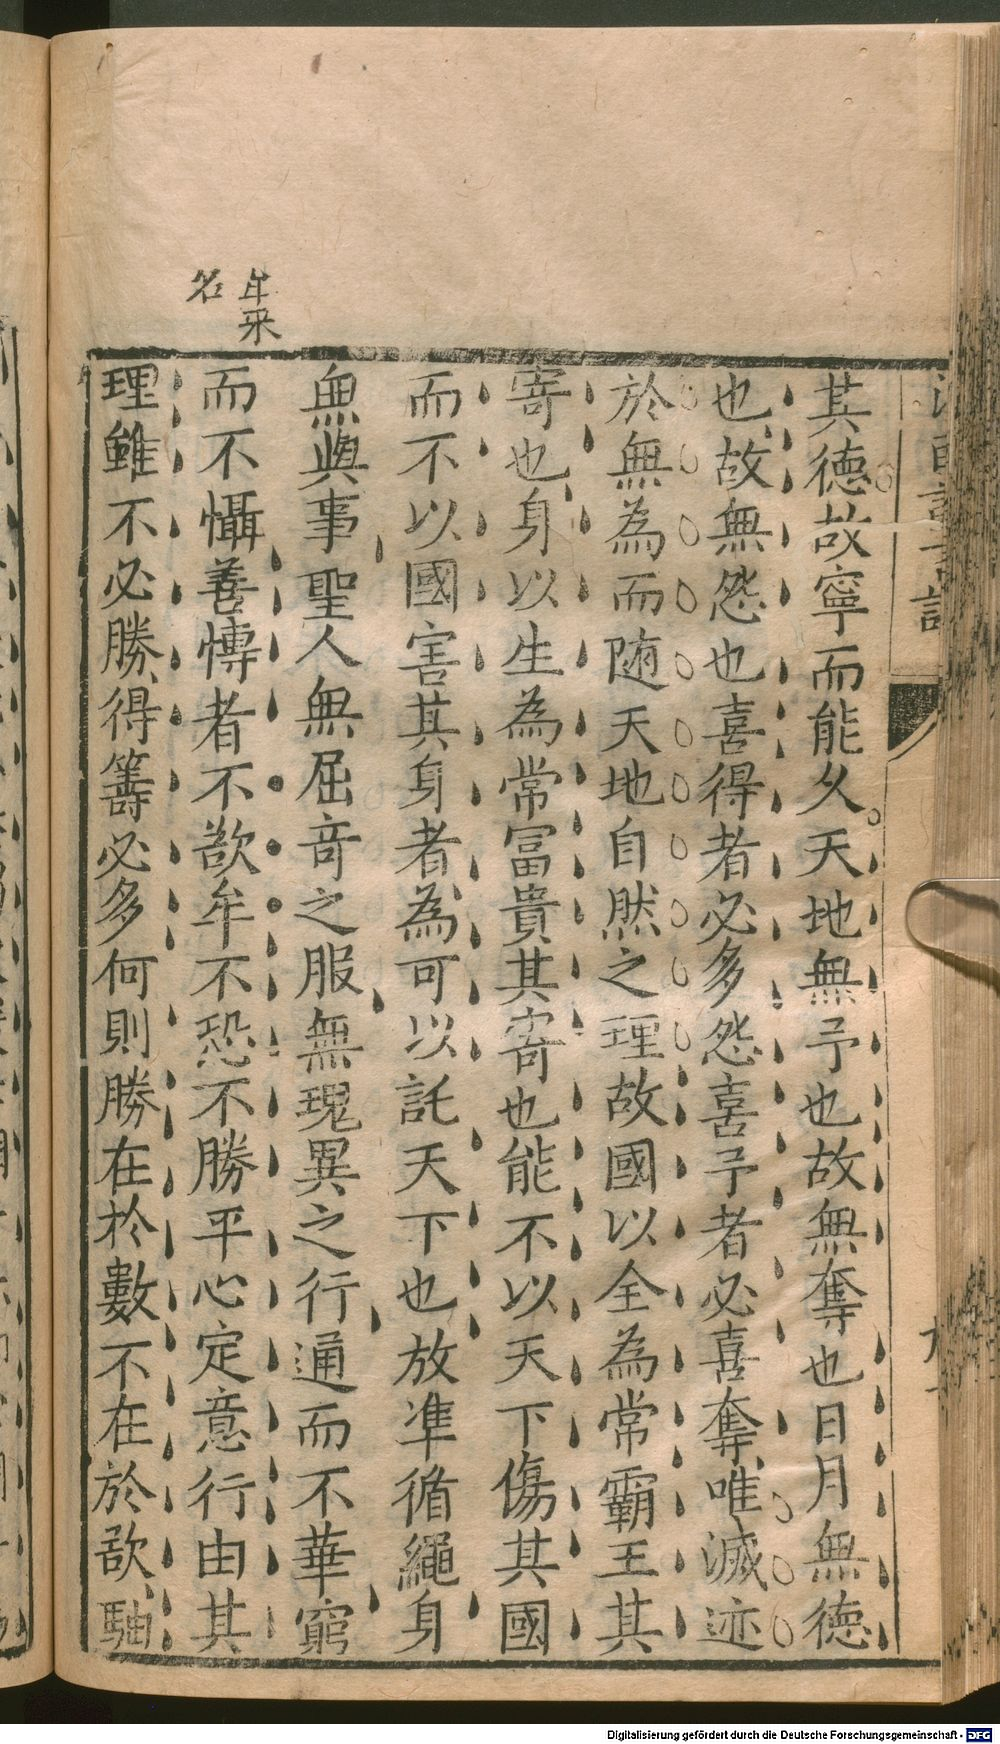 其德故寧而能久天地無予也故無奪也日月無德
也故無怨也喜得者必多怨喜予者必喜奪唯滅迹
於無為而随天地自然之理故國以全為常霸王其
寄也身以生為常富貴其寄也能不以天下傷其國
而不以國害其身者為可以託天下也放準循繩身
無與事聖人無屈竒之服無瑰異之行通而不華窮
而不懾善慱者不欲牟不恐不勝平心定意行由其
理雖不必勝得籌必多何則勝在於數不在於欲馿
名
Digitalisierung gefördert durch die Deutsche Forschungsgemeinschaft - DFG